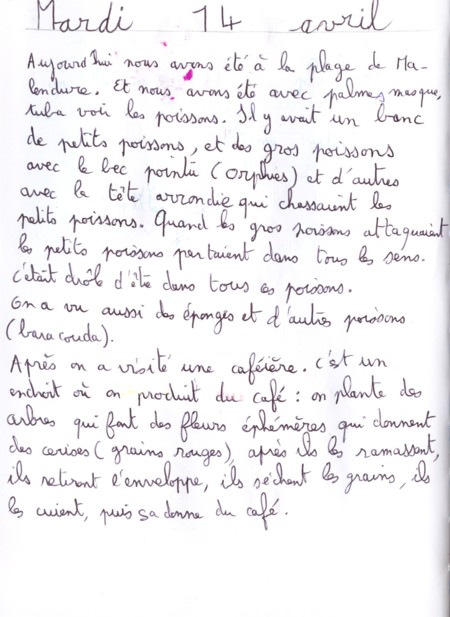 Mardi 14 avril
Aujourd'hui nous avons été à la plage de Ma-
lendure. Et nous avons été avec palmes, masque,
tuba voir les poissons. Il y avait un banc
de petits poissons, et des gros poissons
avec le bec pointu (orphies) et d'autres
avec la tête arrondie qui chassaient les
petits poissons. Quand les gros poissons attaquaient
les petits poissons partaient dans tous les sens.
C'était drôle d'être dans tous ces poissons.
On a vu aussi des éponges et d'autres poissons
(baracouda).
Après on a visité une caféière. C'est un
endroit où on produit du café : on plante des
arbres qui font des fleurs éphémères qui donnent
des cerises (grains rouges), après ils les ramassent,
ils retirent l'enveloppe, ils sèchent les grains, ils
les cuient, puis sa donne du café.